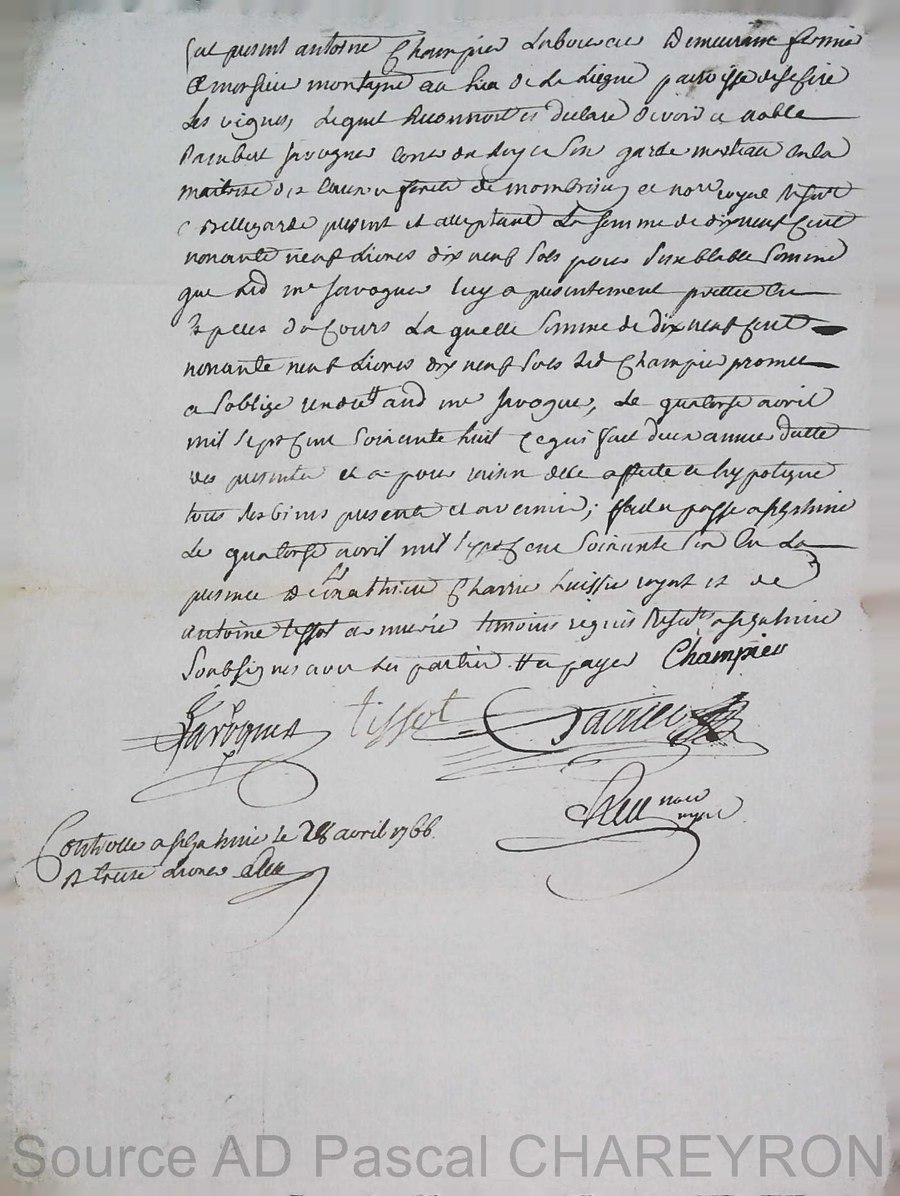 fut present antoine Champier laboureur demeurant fermier
de monsieur montagne au lieu de la Liegue parroisse de
les vignes, lequel reconnoit et declare devoir a noble
Rambert Javogues coner du Roy et son garde marteau en la
maitrise des eaux et forets de mombrison, et nore royal resert
a Bellegarde present et acceptant la somme de dix neuf cent
nonante neuf livres dix neuf sols pour semblable somme
que led me Javogues luy a presentement prettée en
Especes du cours la quelle somme de dix neuf cent
nonante neuf livres dix neuf sols led Champier promet
et soblige rendre aud me Javogues, le quatorse avril
mil sept cent soixante huit ce qui fait deux années datte
des presentes et a pour raison de ce affecté et hypotequé
tous ses biens presents et avenir; fait et passé a
le quatorse avril mil sept cent soixante six en la
presence de Charrier huissier royal et de
antoine tissot temoins requis
soubsignés avec les parties Champier
Javogues tissot
nore
royal
Controllé a le 28 avril 1766
R treize livres
Source AD Pascal CHAREYRON